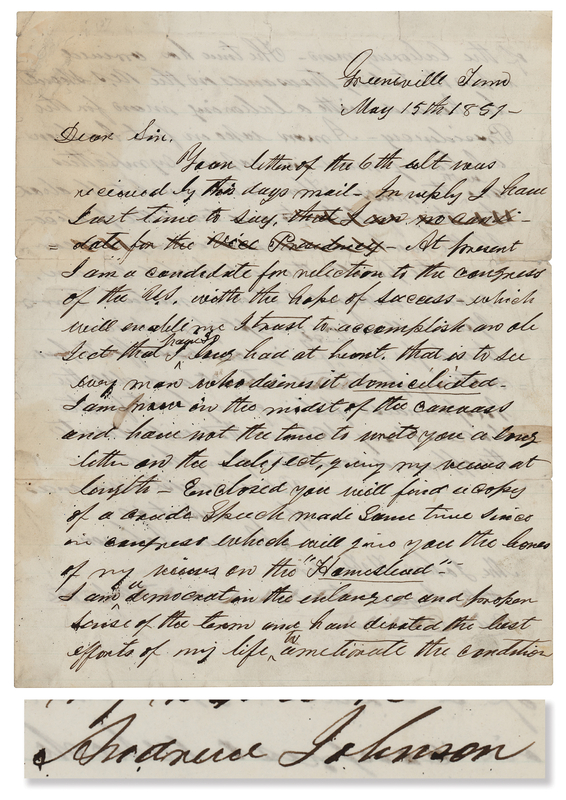 Greeneville Tenn
May 15th 1851-
Dear Sir,
Your letter of the 6th ult was
received by this days mail- In reply I have
Just time to say, that I am no candi-
date for the Vice Presidency- At present
I am a candidate for relection to the congress
of the U.S. with the hope of success- which
will enable me I trust to accomplish an ob
Ject that I have long had at heart. that is to see
every man who desires it domiciliated-
I am now in the midst of the canvass
and have not the time to write you a long
letter on the Subject, giving my views at
length- Enclosed you will find a copy
of a crude Speech made Some time since
in congress which will give you the
of my views on the "Homestead"-
I am a democrat in the enlarged and proper
sense of the term and have devoted the last
efforts of my life, to ameliorate the condition
Andrew Johnson